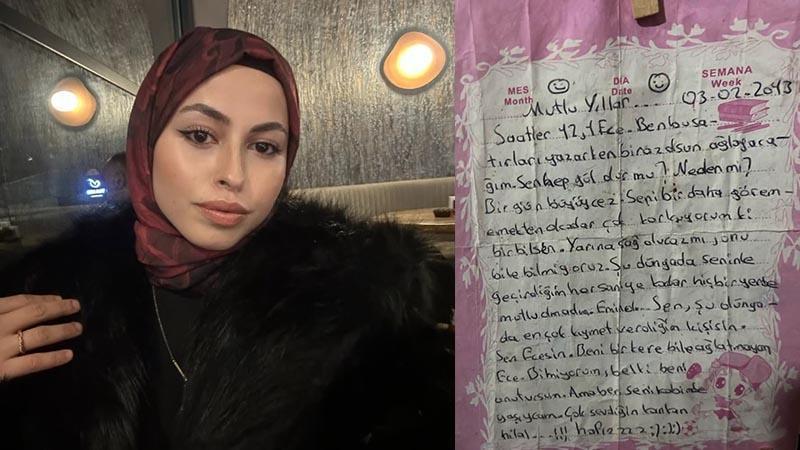 MES DIA SEMANA
Month Date Week
Mutlu Yıllar.... 03-02-2013
Saatler 12, Ece. Ben bu sa-
tırları yazarken biraz olsun ağlayaca-
ğım. Sen hep gül olur mu? Neden mi?
Bir gün büyüycez. Seni bir daha görem-
emekten okadar çok korkuyorum ki
bir bilsen. Yarına olucazmı şunu
bile bilmiyoruz. Şu dünyada seninle
geçirdiğim her saniye kadar hiçbir yerde
mutlu olmadım. Eminol... Sen, şu dünya-
da en çok kıymet verdiğim kişisin.
Sen Ecesin. Beni bir kere bile ağlatmayan
Ece. Bilmiyorum, belki beni
unutursun. Ama ben seni kalbimde
yaşıycam. Çok sevdiğin kankan
hilal...!!! :) :) :)